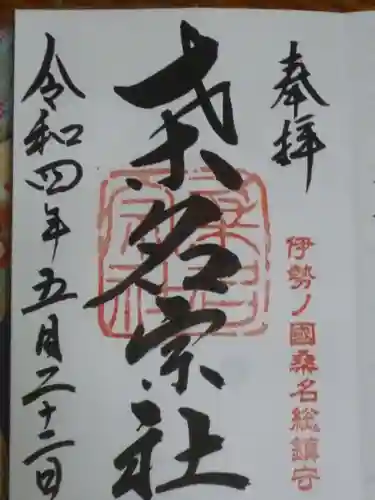 奉拝
伊勢ノ國桑名総鎮守
桑名宗社
令和四年五月二十二日